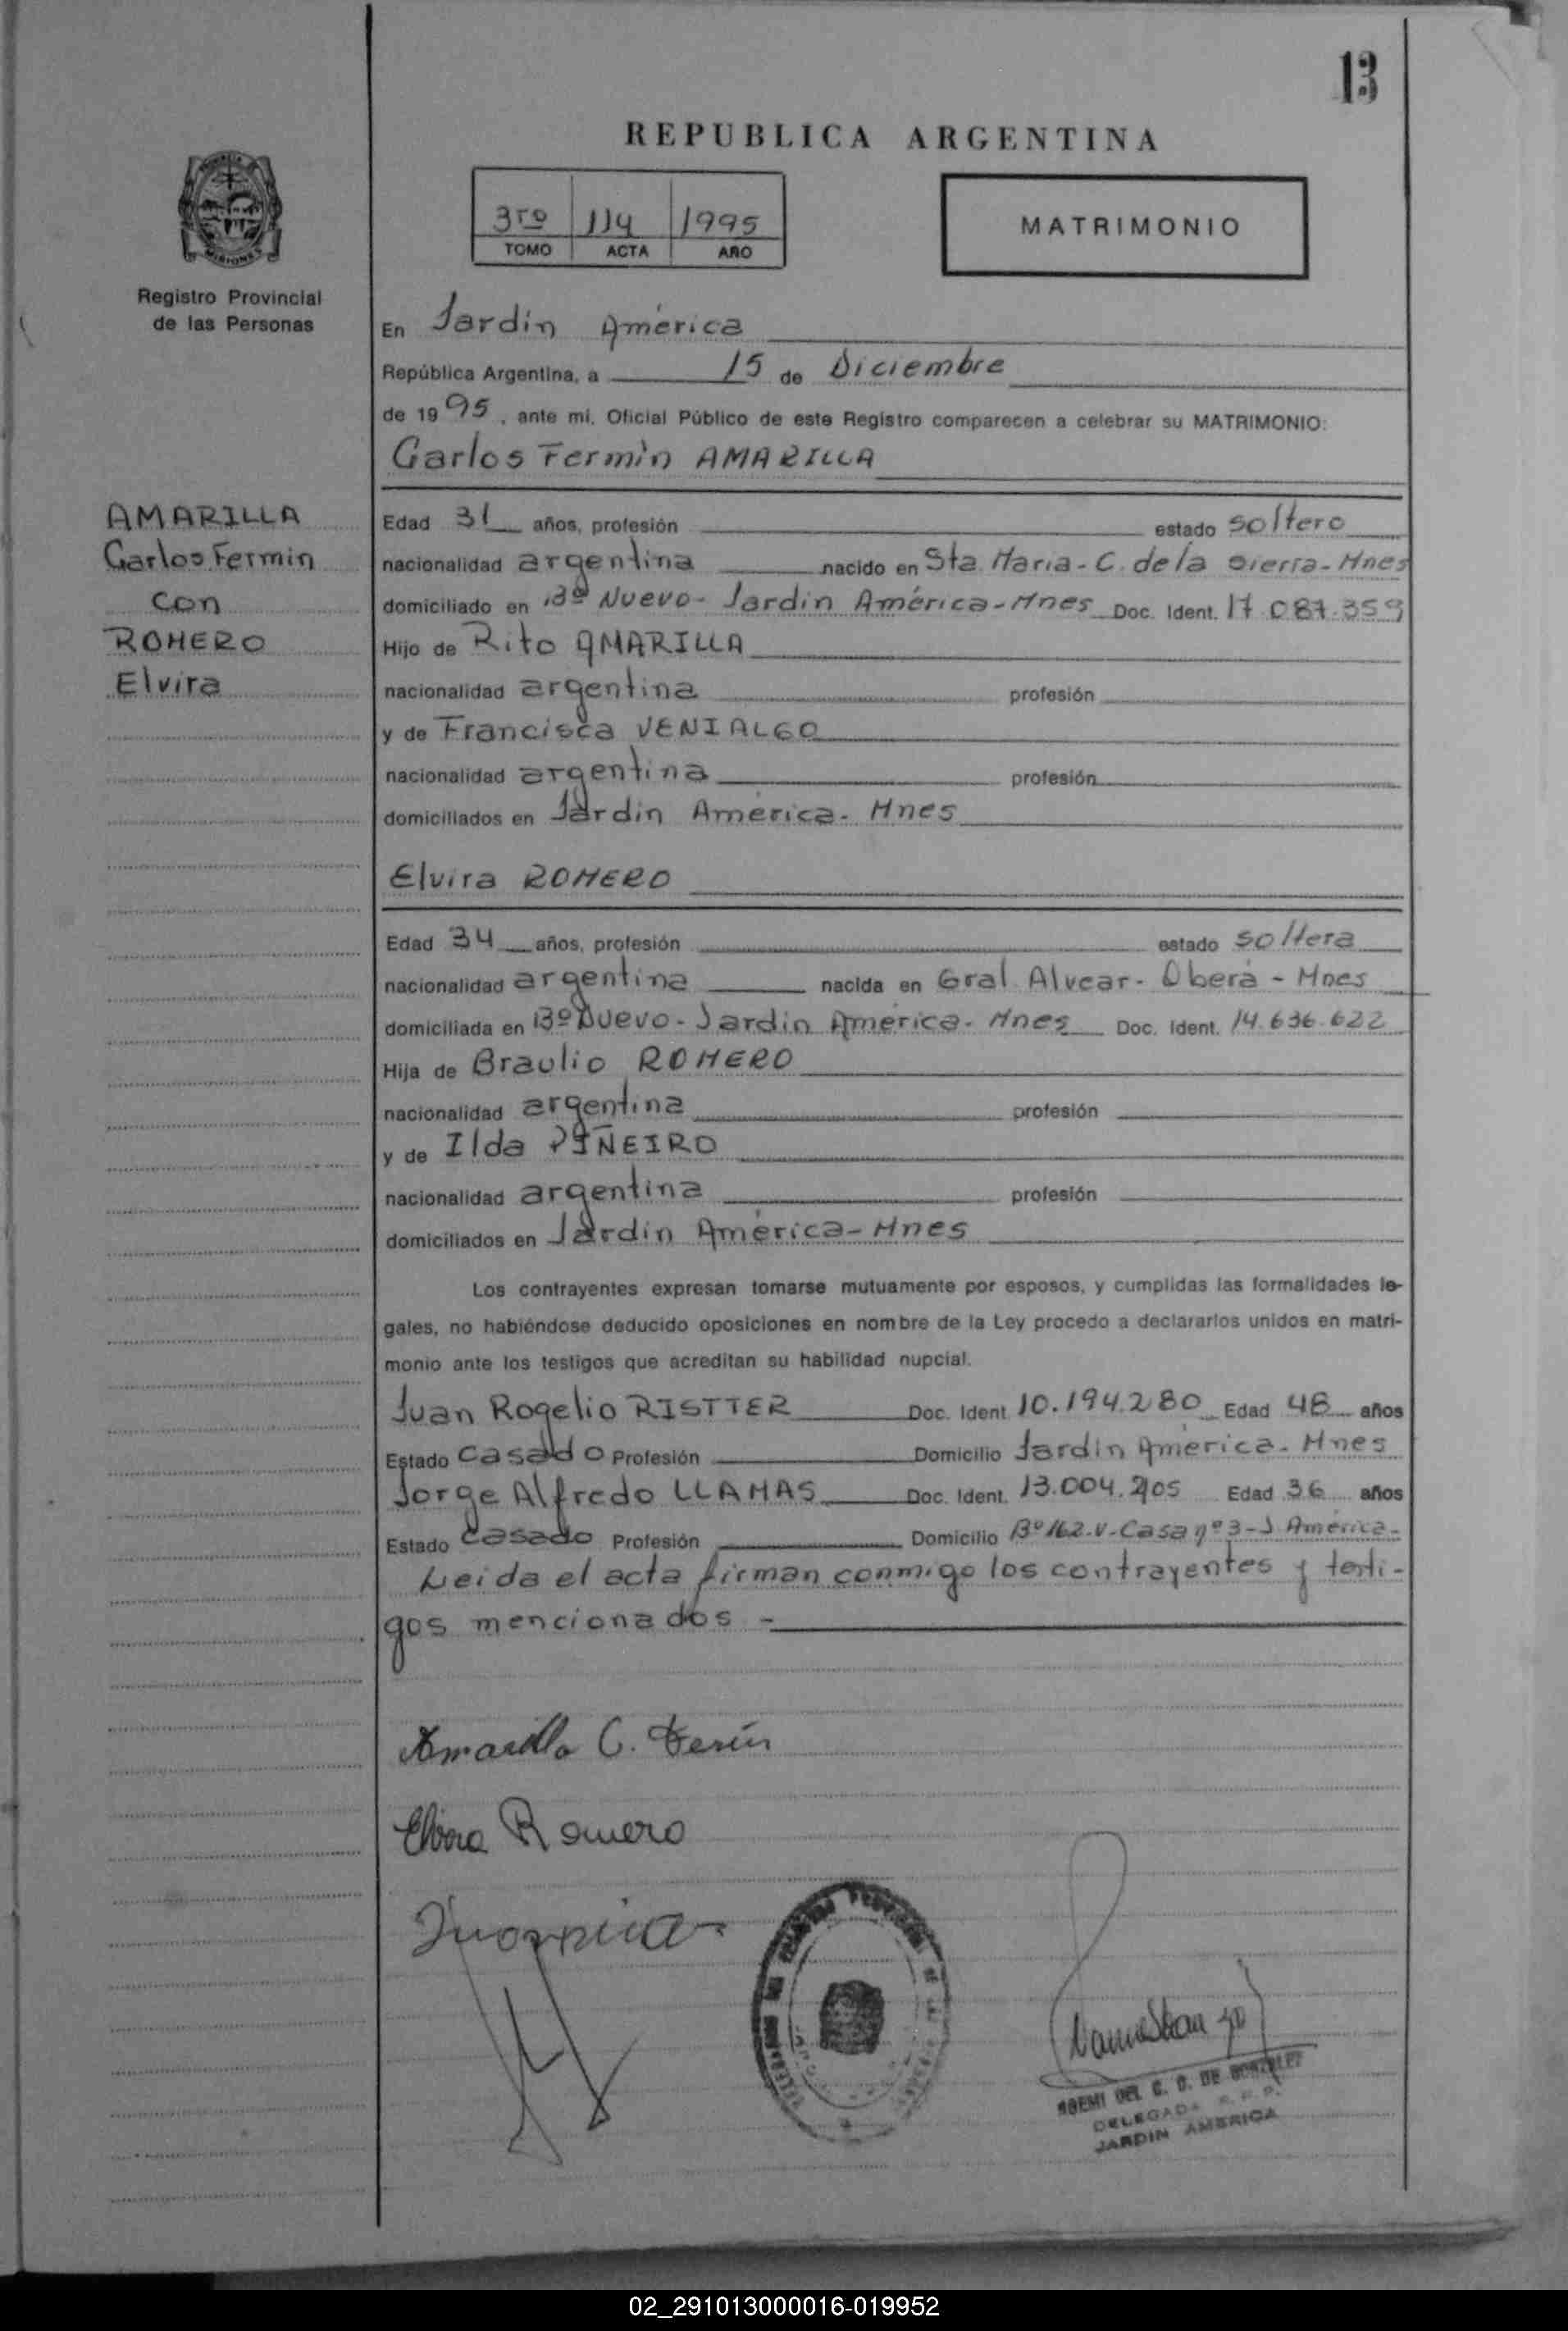 13
REPUBLICA ARGENTINA
3ro 114 1995
TOMO ACTA AÑO
MATRIMONIO
MISIONES
Registro Provincial
de las Personas
En Jardín América
República Argentina, a 15 de Diciembre
de 1995, ante mi, Oficial Público de este Registro comparecen a celebrar su MATRIMONIO:
Carlos Fermín AMARILLA
AMARILLA
Carlos Fermin
con
ROMERO
Elvira
Edad 31 años, profesión estado soltero
nacionalidad argentina nacido en Sta. Maria - C. de la Sierra - Mnes
domiciliado en Bº Nuevo - Jardín América - Mnes Doc. Ident. 17.087.359
Hijo de Rito AMARILLA
nacionalidad argentina profesión
y de Francisca VENIALGO
nacionalidad argentina profesión
domiciliados en Jardín América - Mnes
Elvira ROMERO
Edad 34 años, profesión estado soltera
nacionalidad argentina nacida en Gral Alvear - Oberá - Mnes
domiciliada en Bº Nuevo - Jardín América - Mnes Doc. Ident. 14.636.622
Hija de Braulio ROMERO
nacionalidad argentina profesión
y de Ilda PIÑEIRO
nacionalidad argentina profesión
domiciliados en Jardín América - Mnes
Los contrayentes expresan tomarse mutuamente por esposos, y cumplidas las formalidades le-
gales, no habiéndose deducido oposiciones en nombre de la Ley procedo a declararlos unidos en matri-
monio ante los testigos que acreditan su habilidad nupcial.
Juan Rogelio RISTTER Doc. Ident. 10.194.280 Edad 48 años
Estado Casado Profesión Domicilio Jardín América - Mnes
Jorge Alfredo LLAMAS Doc. Ident. 13.004.205 Edad 36 años
Estado Casado Profesión Domicilio Bº 162.V - Casa nº 3 - J. América -
Leida el acta firman conmigo los contrayentes y testi-
gos mencionados -
Amarilla C. Fermín
Elvira Romero
DEL C. G. DE GONZALEZ
DELEGADA R. P. P.
JARDIN AMERICA
02_291013000016-019952